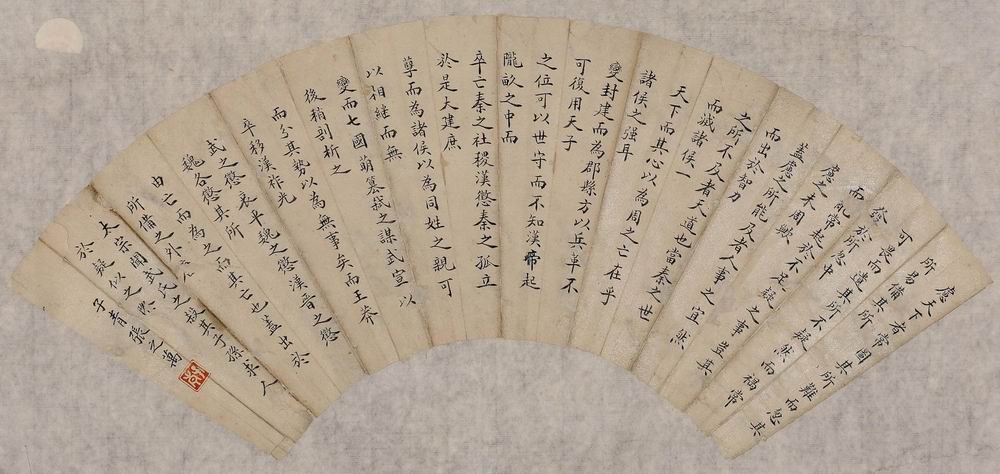 慮天下者常圖其所難而忽其
所易備其所
可畏而遺其所不疑然而禍常
發於所忽中
而亂常起於不足疑之事豈其
慮之未周歟
蓋慮之所能及者人事之宜然
而出於智力
之所不及者天道也當秦之世
而滅諸侯一
天下而其心以為周之亡在乎
諸侯之强耳
變封建而為郡縣方以兵革不
可復用天子
之位可以世守而不知漢帝起
隴畝之中而
卒亡秦之社稷漢懲秦之孤立
於是大建庶
孽而為諸侯以為同姓之親可
以相繼而無
變而七國萌篡弒之謀武宣以
後稍剖析之
而分其勢以為無事矣而王莽
卒移漢祚光
武之懲哀平魏之懲漢晉之懲
魏各懲其所
由亡而為之而其亡也蓋出於
所備之外
太宗聞武氏之殺其子孫求人
於疑似之際
子青張之萬